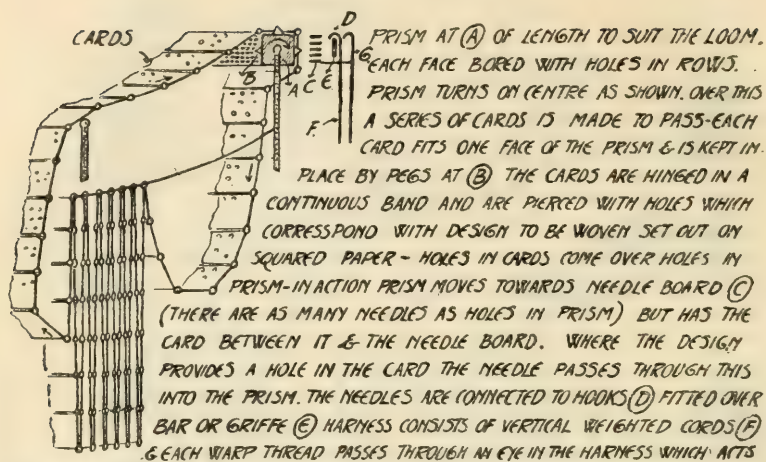 CARDS
D
G.
B
A
C
E
F.
PRISM AT Ⓐ OF LENGTH TO SUIT THE LOOM.
EACH FACE BORED WITH HOLES IN ROWS.
PRISM TURNS ON CENTRE AS SHOWN. OVER THIS
A SERIES OF CARDS IS MADE TO PASS-EACH
CARD FITS ONE FACE OF THE PRISM & IS KEPT IN
PLACE BY PEGS AT Ⓑ THE CARDS ARE HINGED IN A
CONTINUOUS BAND AND ARE PIERCED WITH HOLES WHICH
CORRESPOND WITH DESIGN TO BE WOVEN SET OUT ON
SQUARED PAPER - HOLES IN CARDS COME OVER HOLES IN
PRISM-IN ACTION PRISM MOVES TOWARDS NEEDLE BOARD Ⓒ
(THERE ARE AS MANY NEEDLES AS HOLES IN PRISM) BUT HAS THE
CARD BETWEEN IT & THE NEEDLE BOARD. WHERE THE DESIGN
PROVIDES A HOLE IN THE CARD THE NEEDLE PASSES THROUGH THIS
INTO THE PRISM. THE NEEDLES ARE CONNECTED TO HOOKS Ⓓ FITTED OVER
BAR OR GRIFFE Ⓔ HARNESS CONSISTS OF VERTICAL WEIGHTED CORDS Ⓕ
& EACH WARP THREAD PASSES THROUGH AN EYE IN THE HARNESS WHICH ACTS